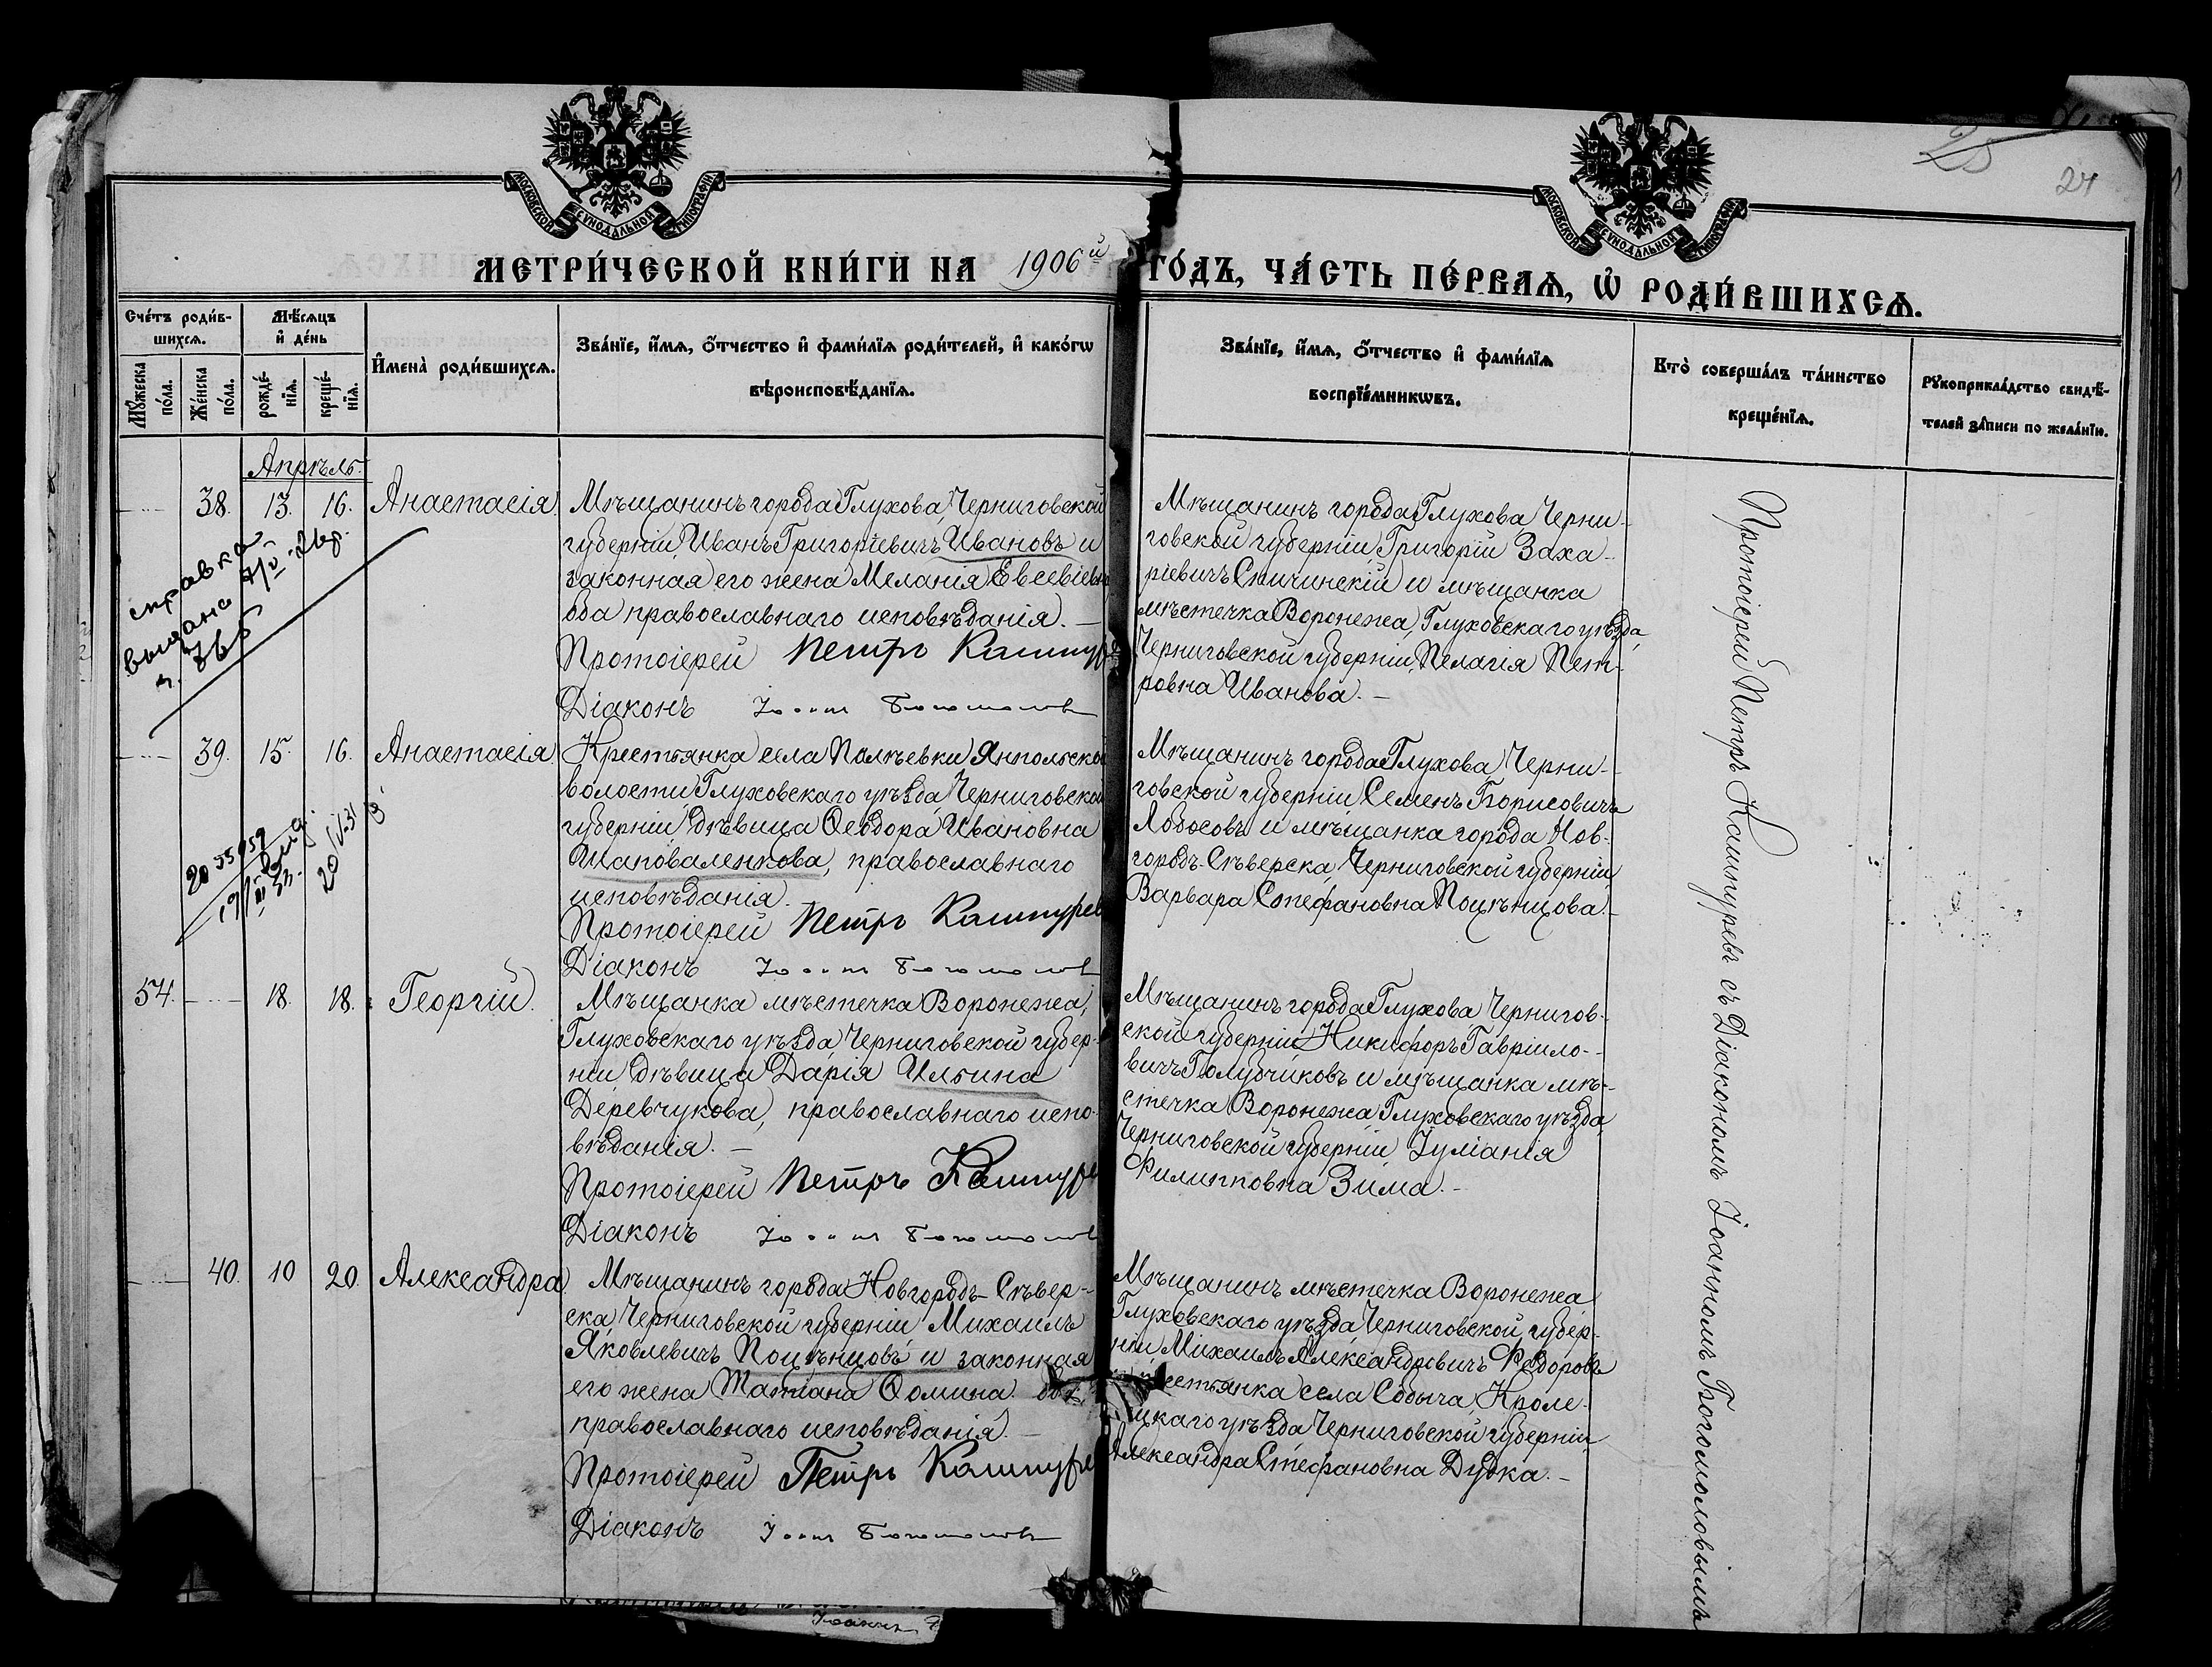 МОСКОВСКОЙ СѴНОДАЛЬНОЙ ТИПОГРАФІИ
МОСКОВСКОЙ СѴНОДАЛЬНОЙ ТИПОГРАФІИ
25
24
МЕТРИ́ЧЕСКОЙ КНИ́ГИ НА 1906й ГО́ДЪ, ЧА́СТЬ ПЕ́РВАѦ, Ѽ РОДИ́ВШИХСѦ.
Сче́тъ роди́в-
шихсѧ.
Мꙋ́жеска по́ла.
Же́нска по́ла.
Мѣ́сѧцъ
и҆ де́нь
рожде́-
нїѧ.
креще́-
нїѧ.
И҆мена̀ роди́вшихсѧ.
Зва́нїе, и҆́мѧ, ѻ҆́тчество и҆ фами́лїѧ роди́телей, и҆ како́гѡ
вѣроисповѣ́данїѧ.
Зва́нїе, и҆́мѧ, ѻ҆́тчество и҆ фами́лїѧ
воспрїе́мникѡвъ.
Кто̀ соверша́лъ та́инство
креще́нїѧ.
Рꙋкоприкла́дство свидѣ́-
телей за́писи по жела́нїю.
Апрѣль.
38. 13. 16. Анастасія.
справка
выдана
Мѣщанинъ города Глухова, Черниговской
губерніи, Иванъ Григоріевичъ Ивановъ и
законная его жена Мелания Евсевіевна
оба православнаго исповѣданія. –
Протоіерей Петръ Кашпурев
Діаконъ Іоаннъ Богомоловъ
Мѣщанинъ города Глухова, Черни-
говской губерніи, Григорій Заха-
ріевичъ Спичинскій и мѣщанка
мѣстечка Воронежа, Глуховскаго уѣзда,
Черниговской губерніи, Пелагія Пет-
ровна Иванова. –
39. 15. 16. Анастасія
Крестьянка села Палѣевки Янпольской
волости, Глуховскаго уѣзда, Черниговской
губерніи дѣвица Ѳеодора Ивановна
Шаповаленкова, православнаго
исповѣданія.
Протоіерей Петръ Кашпурев
Діаконъ Іоаннъ Богомоловъ
Мѣщанинъ города Глухова, Черни-
говской губерніи Семенъ Борисовичъ
Лобосовъ и мѣщанка города Нов-
городъ-Сѣверска, Черниговской губерніи,
Варвара Стефановна Поцѣнцова. –
54. 18. 18. Георгій.
Мѣщанка мѣстечка Воронежа,
Глуховскаго уѣзда, Черниговской губер-
ніи дѣвица Дарія Ильина
Деревчукова, православнаго испо-
вѣданія. –
Протоіерей Петръ Кашпурев
Діаконъ Іоаннъ Богомоловъ
Мѣщанинъ города Глухова Чернигов-
ской губерніи Никифоръ Гавріило-
вичъ Голубчиковъ и мѣщанка мѣ-
стечка Воронежа, Глуховскаго уѣзда,
Черниговской губерніи, Іуліанія
Филипповна Зима. –
40. 10 20. Александра
Мѣщанинъ города Новгородъ-Сѣвер-
ска, Черниговской губерніи Михаилъ
Яковлевичъ Поцѣнцовъ и законная
его жена Татіана Ѳомина оба
православнаго исповѣданія. –
Протоіерей Петръ Кашпурев
Діаконъ Іоаннъ Богомоловъ
Мѣщанинъ мѣстечка Воронежа
Глуховскаго уѣзда, Черниговской губер-
ніи, Михаилъ Александровичъ Федоровъ
крестьянка села Собыча, Кроле-
вецкаго уѣзда Черниговской губерніи
Александра Стефановна Дудка. –
Протоіерей Петръ Кашпуревъ съ Діакономъ Іоанномъ Богомоловымъ